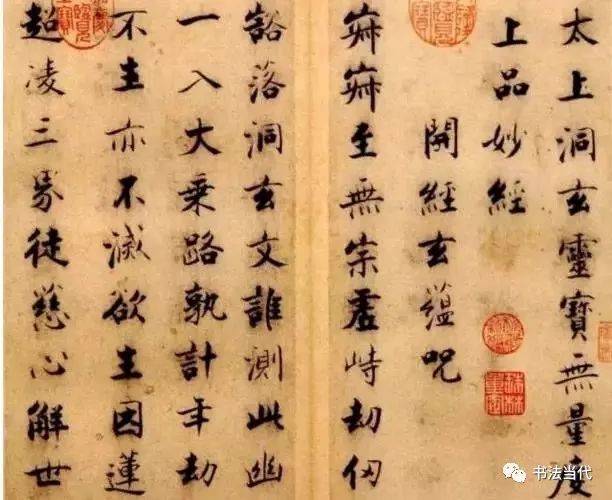 太上洞玄靈寶無量度
上品妙經
開經玄蘊呪
寂寂至無宗虛峙劫仞
豁落洞玄文誰測此幽
一入大乘路孰計年劫
不生亦不滅欲生因蓮
超凌三界徒慈心解世
书法当代